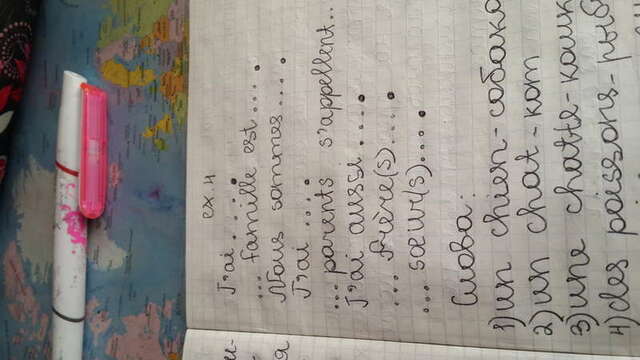 ex. 4
J'ai.....
... famille est.....
Nous sommes.....
J'ai.....
...parents s'appellent...
J'ai aussi.....
... frère(s).....
... soeur(s).....
Слова:
1) un chien - собака
2) un chat - кот
3) une chatte - кошк
4) des poissons - рыб